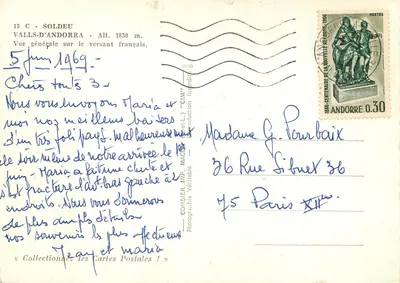 15 C - SOLDEU
VALLS-D'ANDORRA - Alt. 1830 m.
Vue générale sur le versant français.
5 juin 1969-
Chers touts 3-
Nous vous envoyons Maria et
moi nos meilleurs baisers
d'un très joli pays. Malheureusement
le soir même de notre arrivée le 1er
juin - Maria a fait une chute et
s'est fracturé l'avt bras gauche à
endroits. Nous vous donnerons
de plus amples détails
nos souvenirs les plus affectueux
Jean et Maria
« Collectionnez les Cartes Postales ! »
COMBIER IMP. MACON
"CIM"
Reproduction Interdite
ANDORRE 0.30
POSTES
Madame G. Pourbaix
36 Rue Sibuet 36
75 Paris XIIème